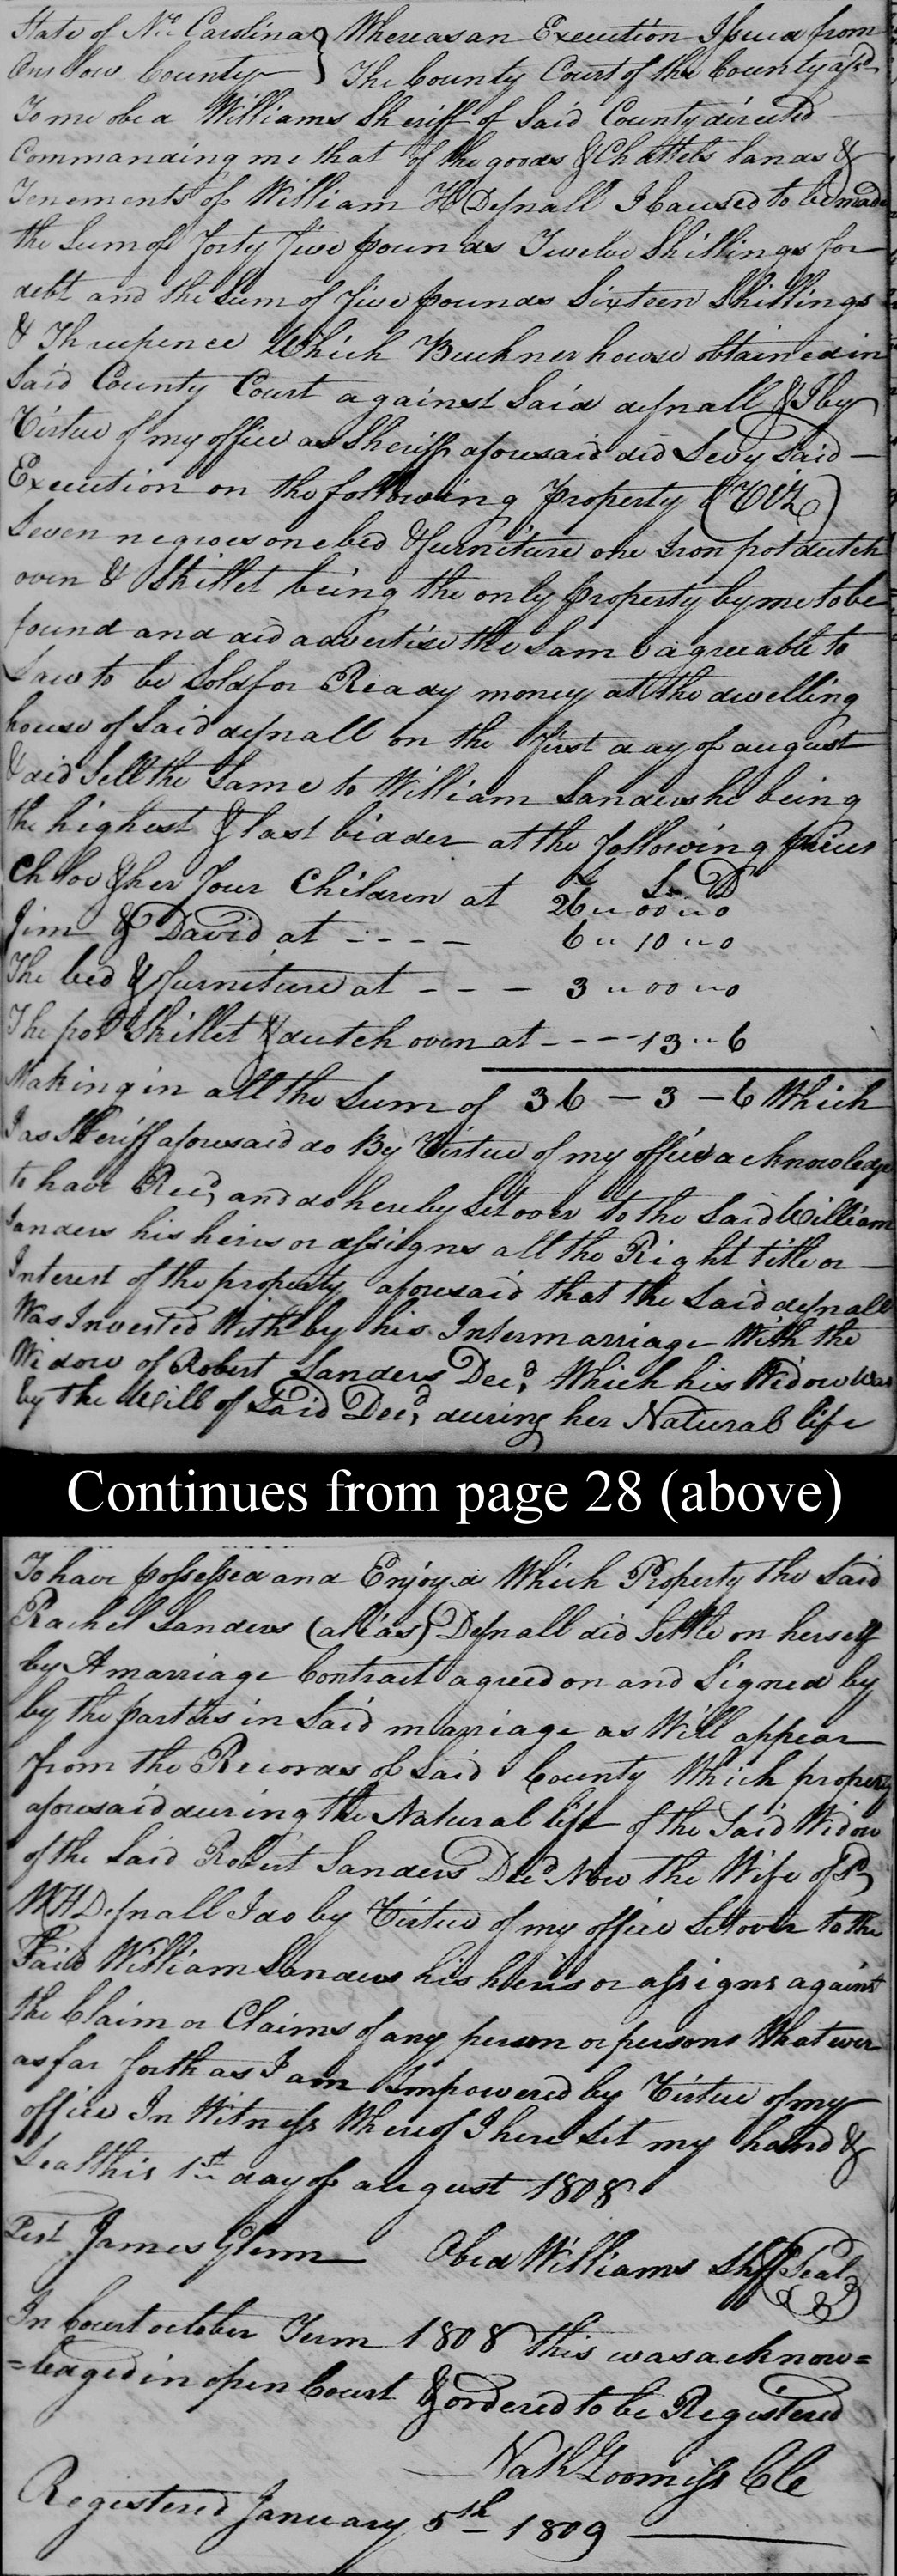 State of No. Carolina } Whereas an Execution Issued from
Onslow County } The County Court of the County afsd
To me obed Williams Sheriff of Said County directed
Commanding me that of the goods & Chattels lands &
Tenements of William H Defnall I Caused to be made
the Sum of forty five pounds Twelve Shillings for
debt and the Sum of five pounds Sixteen Shillings
& Threepence Which Buckner house obtained in
Said County Court against Said defnall & I by
Virtue of my office as Sheriff aforesaid did Levy Said
Execution on the following Property (Viz)
Seven negroes one bed & furniture one Iron pot dutch
oven & Skillet being the only property by me to be
found and did advertise the Same agreeable to
Law to be Sold for Ready money at the dwelling
house of Said defnall on the first day of august
& did Sell the Same to William Sanders he being
the highest & last bidder at the following prices
£ S D
Chloe & her four Children at 26 " 00 " 0
Jim & David at - - - - 6 " 10 " 0
The bed & furniture at - - - 3 " 00 " 0
The pot Skillet & dutch oven at - - - - 13 " 6
Making in all the Sum of 36 - 3 - 6 Which
I as Sheriff aforesaid do By Virtue of my office acknowledge
to have Recd, and do hereby Set over to the Said William
Sanders his heirs or assigns all the Right title or
Interest of the property aforesaid that the Said defnall
Was Invested With by his Intermarriage With the
Widow of Robert Sanders Decd, Which his Widow Was
by the Will of Said Decd, during her Natural life
Continues from page 28 (above)
To have possessed and Enjoyed Which Property the Said
Rachel Sanders (alias) Defnall did Settle on herself
by A marriage Contract agreed on and Signed by
by the parties in Said marriage as Will appear
from the Records of Said County Which property
aforesaid during the Natural life of the Said Widow
of the Said Robert Sanders Decd Now the Wife of Sd
WH Defnall I do by Virtue of my office Set over to the
Said William Sanders his heirs or assigns against
the Claim or Claims of any person or persons Whatever
as far forth as I am Impowered by Virtue of my
office In Witness Whereof I here Set my hand &
Seal this 1st day of august 1808
Test James Glenn Obed Williams Shff Seal
In Court october Term 1808 This was acknow=
=ledged in open Court & ordered to be Registered
Nath Loomiss Clk
Registered January 5th 1809